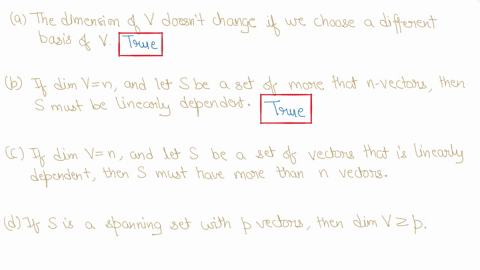 (a) The dimension of V doesn't change if we choose a different
basis of V. True
(b) If dim V=n, and let S be a set of more that n-vectors, then
S must be linearly dependent. True
(c) If dim V=n, and let S be a set of vectors that is linearly
dependent, then S must have more than n vectors.
(d) If S is a spanning set with p vectors, then dim V ≥ p.